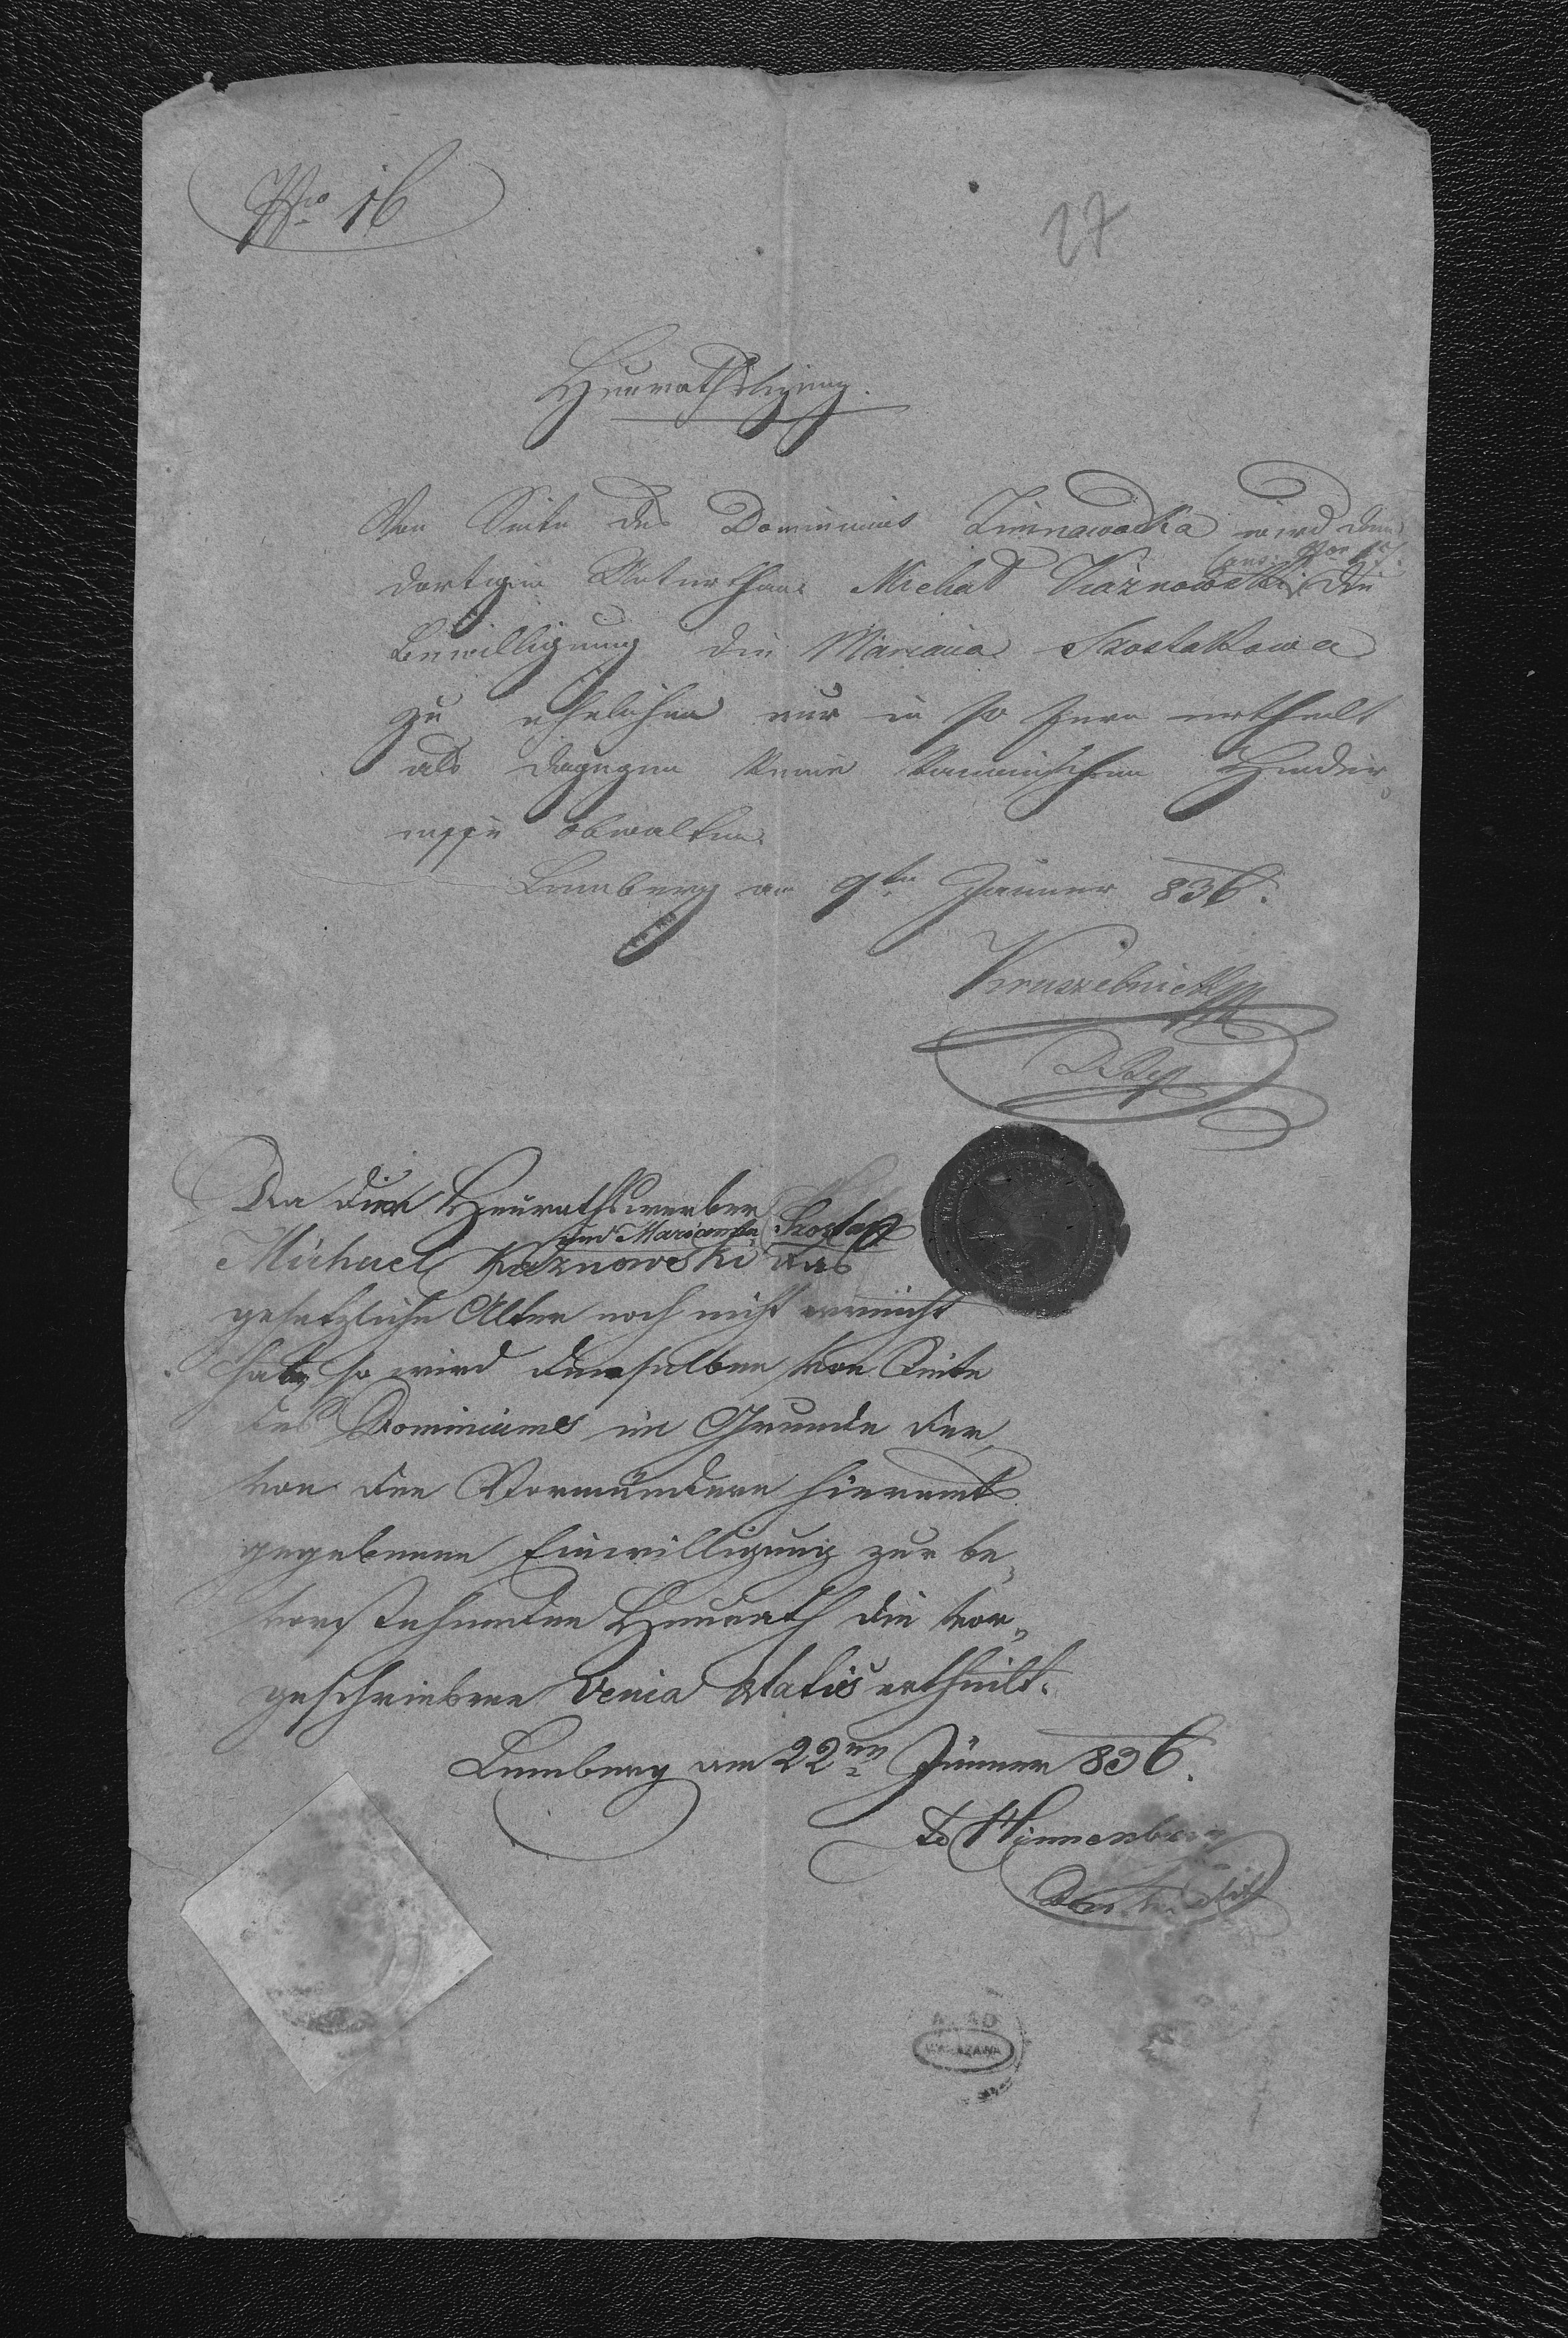 Nro 16
27
Heurathsligung.
Von Seite des Dominiums Zimnawodka wird dem
dortigen Unterthan Michał Kaznowski die
Bewilligung die Maria Szostakowa
zu ehelichen nur in so fern ertheilt
als dagegen keine kanonischen Hinder-
nisse obwalten.
Lemberg am 9ten Jänner 836.
Kruszelnicki
Da die Heurathswerber
und Marianna Szostak
Michael Kaznowski das
gesetzliche Alter noch nicht erreicht
haben so wird denselben von Seite
des Dominiums im Grunde der
von den Vormündern hieramts
gegebenen Einwilligung zur be-
vorstehenden Heurath die vor-
geschriebene Venia Aetatis ertheilt.
Lemberg am 22ten Jänner 836.
AGAD
WARSZAWA